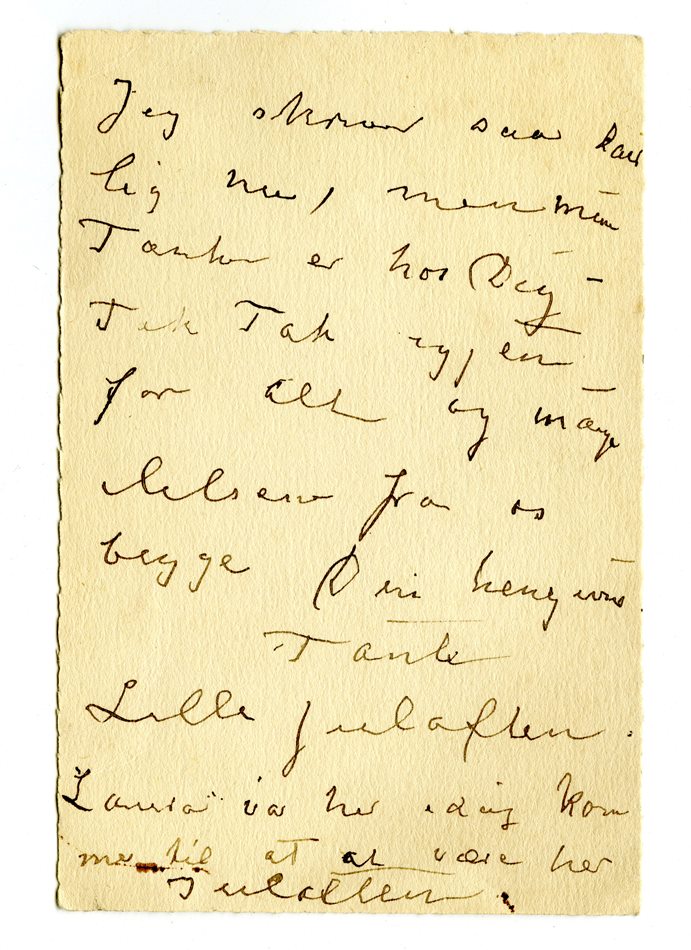 Jeg skriver saa daar
lig nu, men mine
Tanker er hos Dig –
Tak Tak igjen
for alt og mange
hilsener fra os
begge Din hengivne
Tante
Lille Juleaften.
Laura var her idag kom
mer til at at være her
Juleaften.